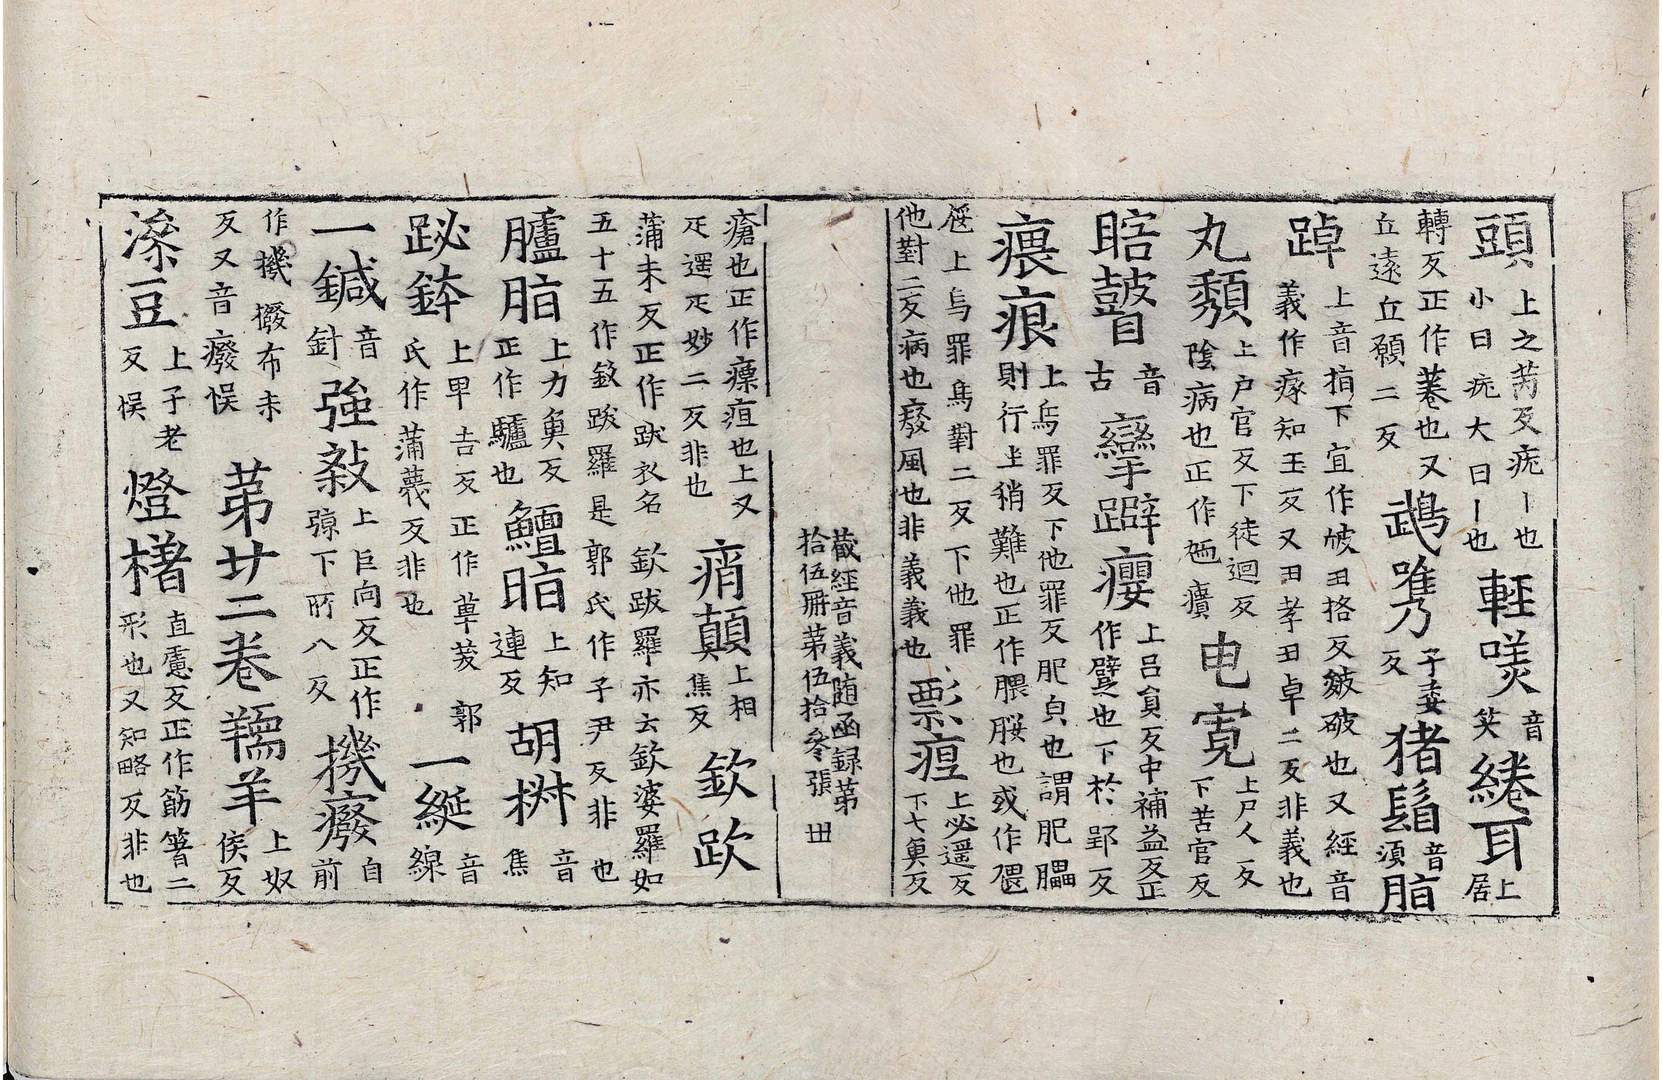 頭上之芮反疣丨也小曰疣大曰丨也輕㗛音笑綣耳上居
轉反正作菤也又丘遠丘願二反鴟嘴子委反猪鬚音須脂
踔上音指下宜作皴丑挌反皴破也又經音義作瘃知玉反又丑孝丑卓二反非義也
丸頹上戶官反下徒迴反陰病也正作㿉电寛上尸人反下苦官反
瞎瞽音古孿躃癭上呂員反中補益反正作躄也下於郢反
㾯痕上烏罪反下他罪反肥皃也謂肥䐔則行坐稍難也正作腲腇也或作㾯
㾼上烏罪烏對二反下他罪他對二反病也癈風也非義義也瘭疽上必遥反下七魚反
藏經音義随函録第
拾伍冊第伍拾叅張 丗
瘡也正作瘭疽也上又疋遥疋妙二反非也痟顛上相焦反欽跋
蒲末反正作跋衣名 欽跋羅亦云欽婆羅如五十五作欽跋羅是郭氏作子尹反非也
臚脂上力魚反正作驢也鱣脂上知連反胡椒音焦
䟤鉢上卑吉反正作蓽茇 郭氏作蒲蔑反非也一綖音線
一鍼音針強敍上巨向反正作弶下所八反撥癈自前
作機撥布末反又音癈悮第廿二卷羺羊上奴侯反
澡豆上子老反悮燈櫡直慮反正作筯箸二形也又知略反非也